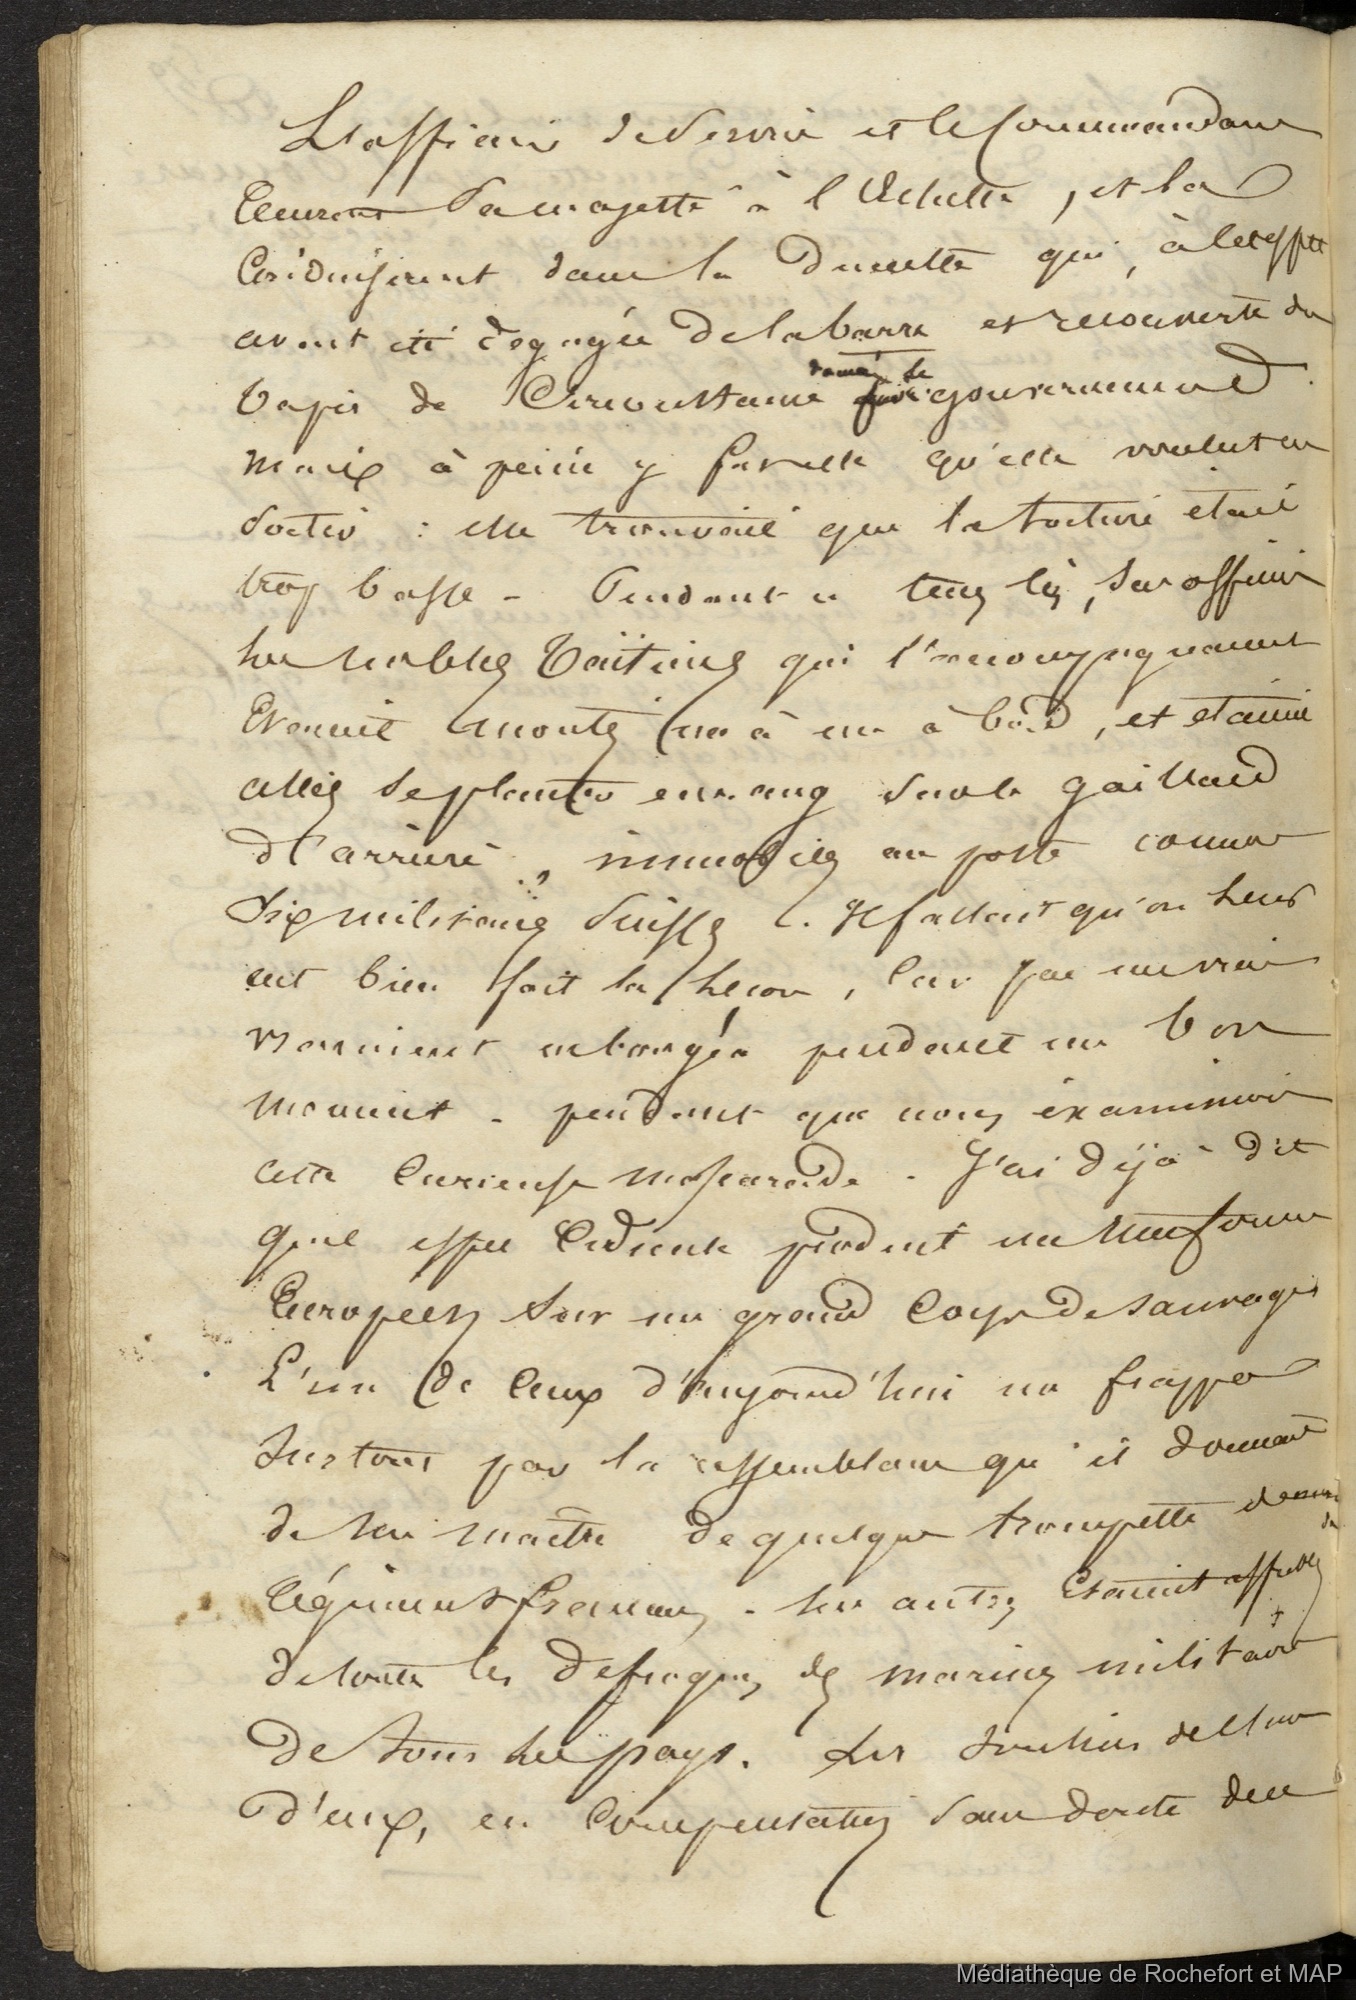 L'officier de Service et le Commandant
reçurent Sa majesté à l'Echelle, et la
Conduisirent dans la Dunette qui, à cet effet
avait été dégagée de la barre et recouverte du
tapis de Circonstance gouvernement
mais à peine y fut elle qu'elle voulut en
Sortir : elle trouvait que la toiture était
trop basse - Pendant ce temps là, Ses officiers
les nobles Taïtiens qui l'accompagnaient
Etaient montés un à un à bord, et etaient
allés se planter en rang Sur le gaillard
d'arrière, immobiles au poste comme
Six militaires Suisses. Il fallait qu'on leur
eut bien fait la leçon, Car pas un ne
bougea pendant un bon
moment - pendant que nous examinions
cette Curieuse mascarade - J'ai déjà dit
quel effet produit un uniforme
Européen Sur un grand Corps de sauvage
L'un de Ceux d'aujourd'hui me frappa
Surtout par la ressemblance qu'il donnait
de son maître de quelque trompette
régiment français - les autres Etaient affublés
de toutes les défroques des marines militaires
De tous les pays. Les Souliers de l'un
D'eux, en Compensation Sans doute des
Médiathèque de Rochefort et MAP